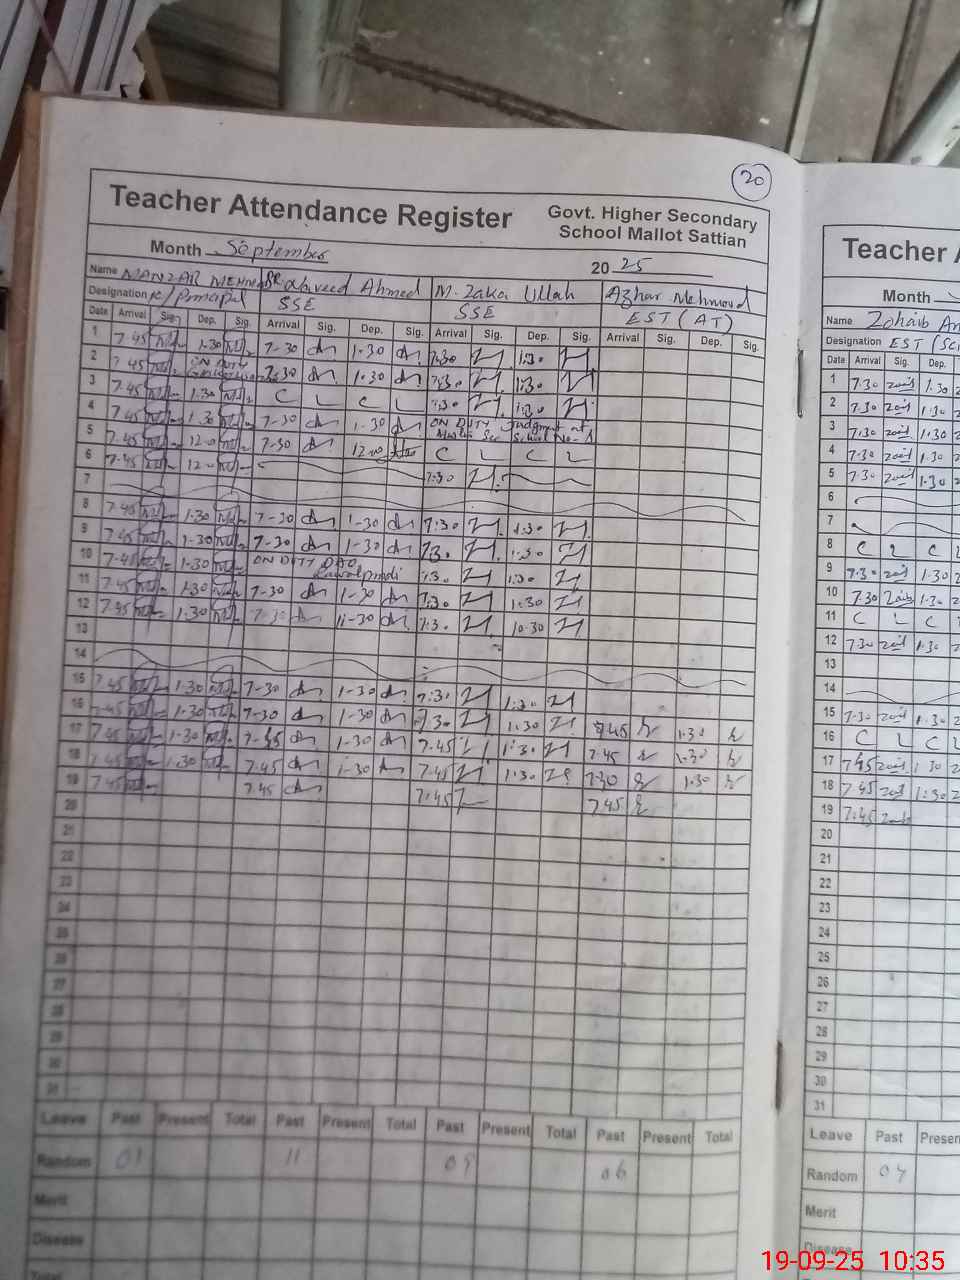 20
Teacher Attendance Register
Govt. Higher Secondary
School Mallot Sattian
Month September 2025
Name Naveed Ahmed M. Zaka Ullah Azhar Mehmood
Designation SSE SSE EST (AT)
Date Arrival Sig. Dep. Sig. Arrival Sig. Dep. Sig. Arrival Sig. Dep. Sig. Arrival Sig. Dep. Sig.
1 7-45 1-30 7-30 1-30 7:30 1:30
2 7-45 ON DUTY 7-30 1-30 7:30 1:30
3 7-45 1-30 C L C L 7:30 1:30
4 7-45 1-30 7-30 1-30 ON DUTY
5 7-45 12-0 7-30 12-0 C L C L
6 7-45 12-0 7:30
7
8 7-45 1-30 7-30 1-30 7:30 1:30
9 7-45 1-30 7-30 1-30 7:30 1:30
10 7-45 1-30 ON DUTY Rawalpindi 7:30 1:30
11 7-45 1-30 7-30 1-30 7:30 1:30
12 7-45 1-30 7-30 11-30 7:30 10-30
13
14
15 7-45 1-30 7-30 1-30 7:30 1:30
16 7-45 1-30 7-30 1-30 7:30 1:30 7:45 1:30
17 7-45 1-30 1-30 7-45 1:30 7-45 1:30
18 7-45 1-30 7-45 1-30 7-45 1:30 7:30 1:30
19 7-45 7-45 7:45 7:45
20
21
22
23
24
25
26
27
28
29
30
31
Leave Past Present Total Past Present Total Past Present Total Past Present Total
Random 01 11 09 06
Merit
Disease
Total
Teacher A
Month
Name Zohaib
Designation EST
Date Arrival Sig. Dep.
1 7-30 1-30
2 7-30 1-30
3 7-30 1-30
4 7-30 1-30
5 7-30 1-30
6
7
8 C L C
9 7-30 1-30
10 7-30 1-30
11 C L C
12 7-30 1-30
13
14
15 7-30 1-30
16 C L C
17 7:45 1-30
18 7:45 1:30
19 7:45
20
21
22
23
24
25
26
27
28
29
30
31
Leave Past Presen
Random 04
Merit
Disease
19-09-25 10:35